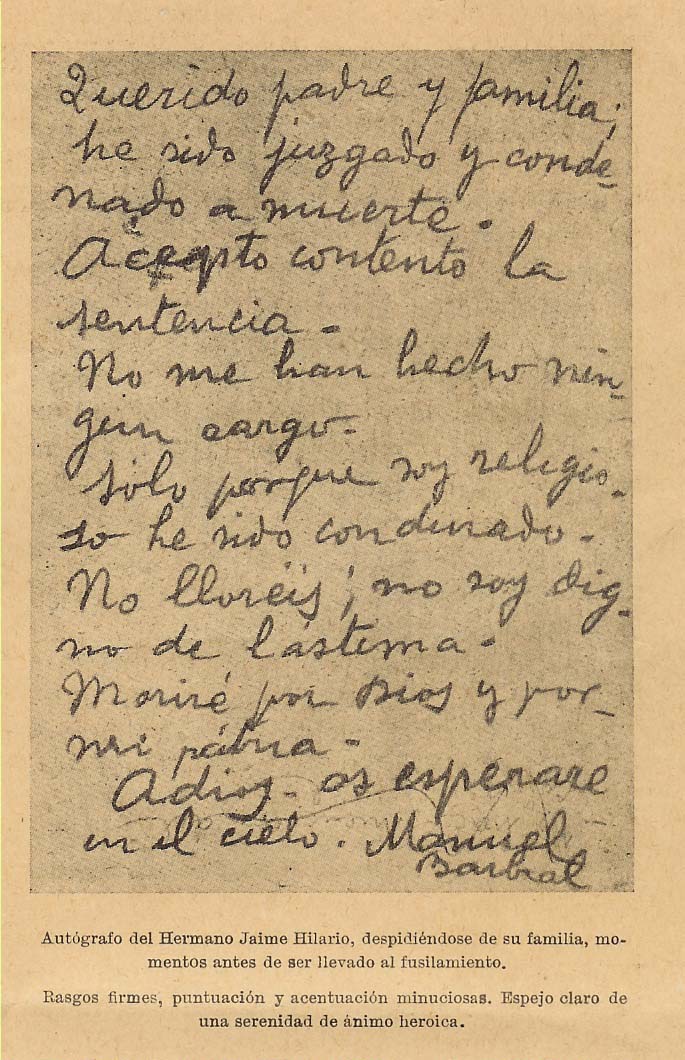 Querido padre y familia;
he sido juzgado y conde-
nado a muerte.
Acepto contento la
sentencia.
No me han hecho nin-
gun cargo.
Sólo porque soy religio-
so he sido condenado.
No lloréis; no soy dig-
no de lástima.
Moriré por Dios y por
mi pátria.
Adios. os esperare
en el cielo. Manuel
Barbal
Autógrafo del Hermano Jaime Hilario, despidiéndose de su familia, mo-
mentos antes de ser llevado al fusilamiento.
Rasgos firmes, puntuación y acentuación minuciosas. Espejo claro de
una serenidad de ánimo heroica.